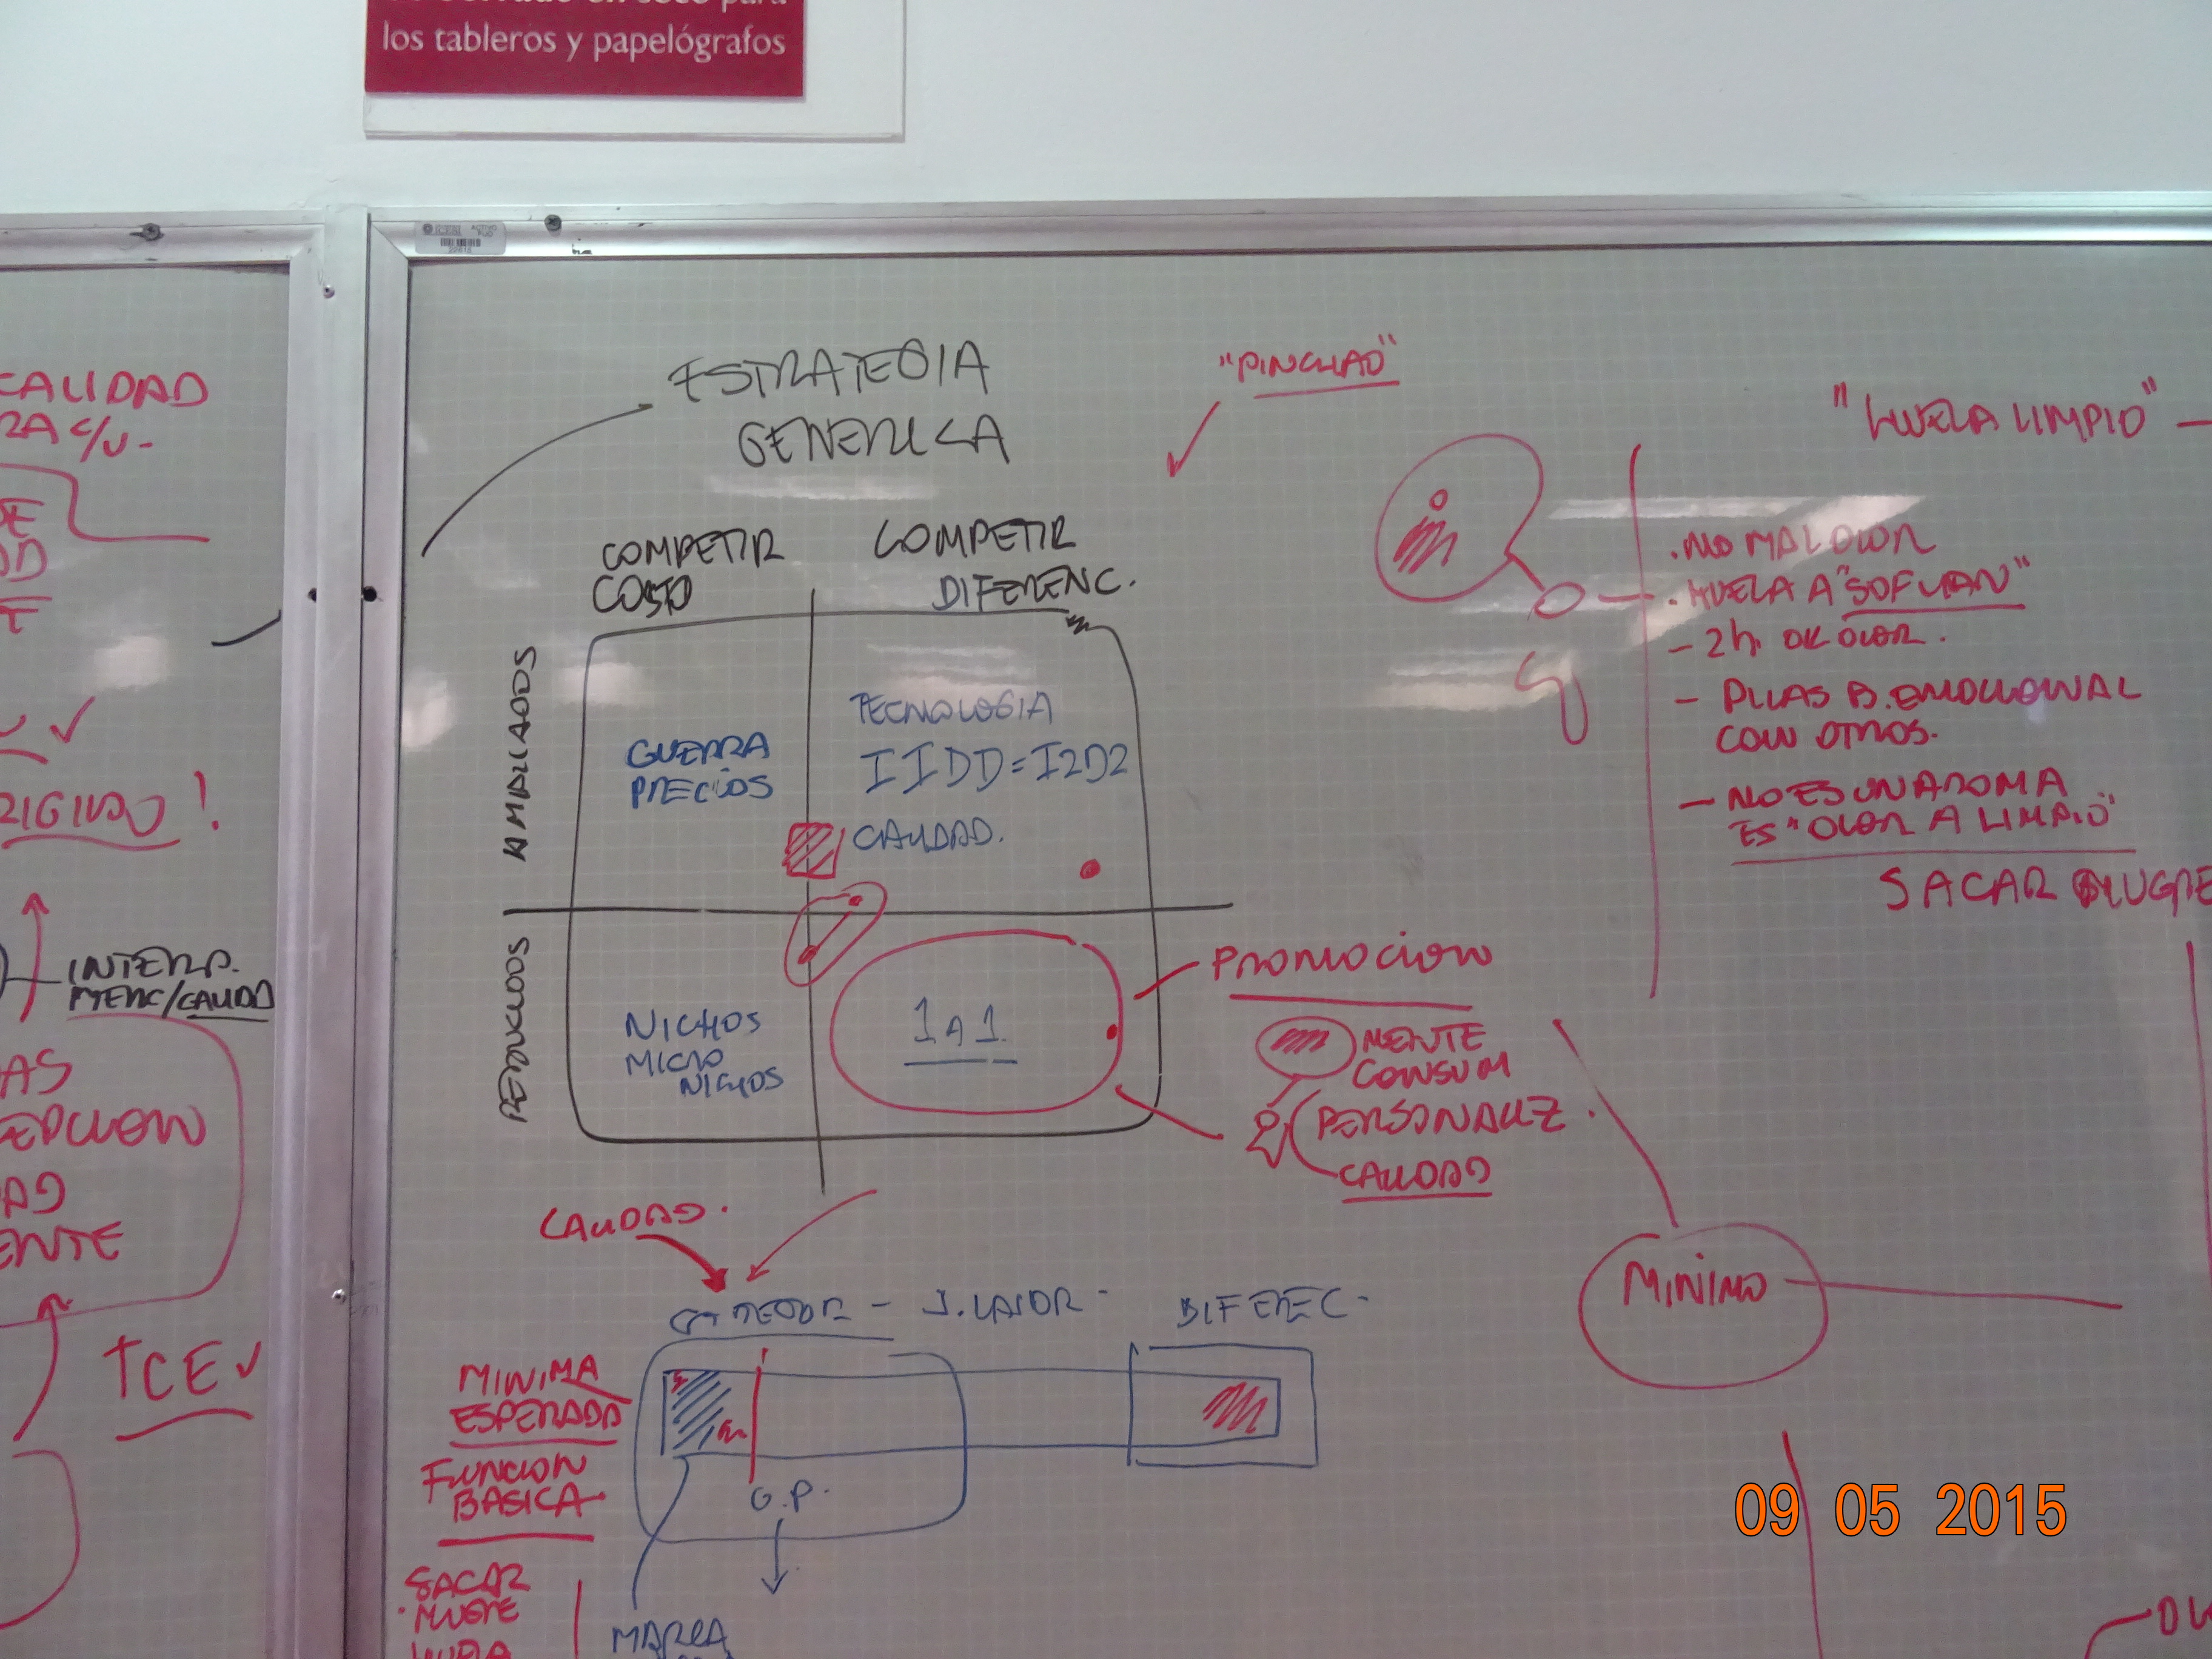 los tableros y papelógrafos
CALIDAD
RA C/U-
DE
RIGIDO!
INTERP.
MERC/CALIDD
AS
EPCION
AD
ENTE
TCE
ESTRATEGIA
GENERICA
"PINCHAO"
COMPETIR
COSTO
COMPETIR
DIFERENC.
AMPLIADOS
GUERRA
PRECIOS
TECNOLOGIA
IIDD=I2D2
CALIDAD.
REDUCIDOS
NICHOS
MICRO
NICHOS
1 A 1
PROMOCION
MENTE
CONSUM
PERSONALIZ.
CALIDAD
"HUELA LIMPIO" -
. NO MAL OLOR
. HUELA A "SOFLAN"
- 2h. OK OLOR.
- PILAS B. EMOCIONAL
CON OTROS.
- NO ES UN AROMA
ES "OLOR A LIMPIO"
SACAR MUGRE
MINIMO
CALIDAD.
DIFEREC-
MINIMA
ESPERADA
FUNCION
BASICA
G.P.
SACAR
. MUGRE
HUELA
MARCA
09 05 2015